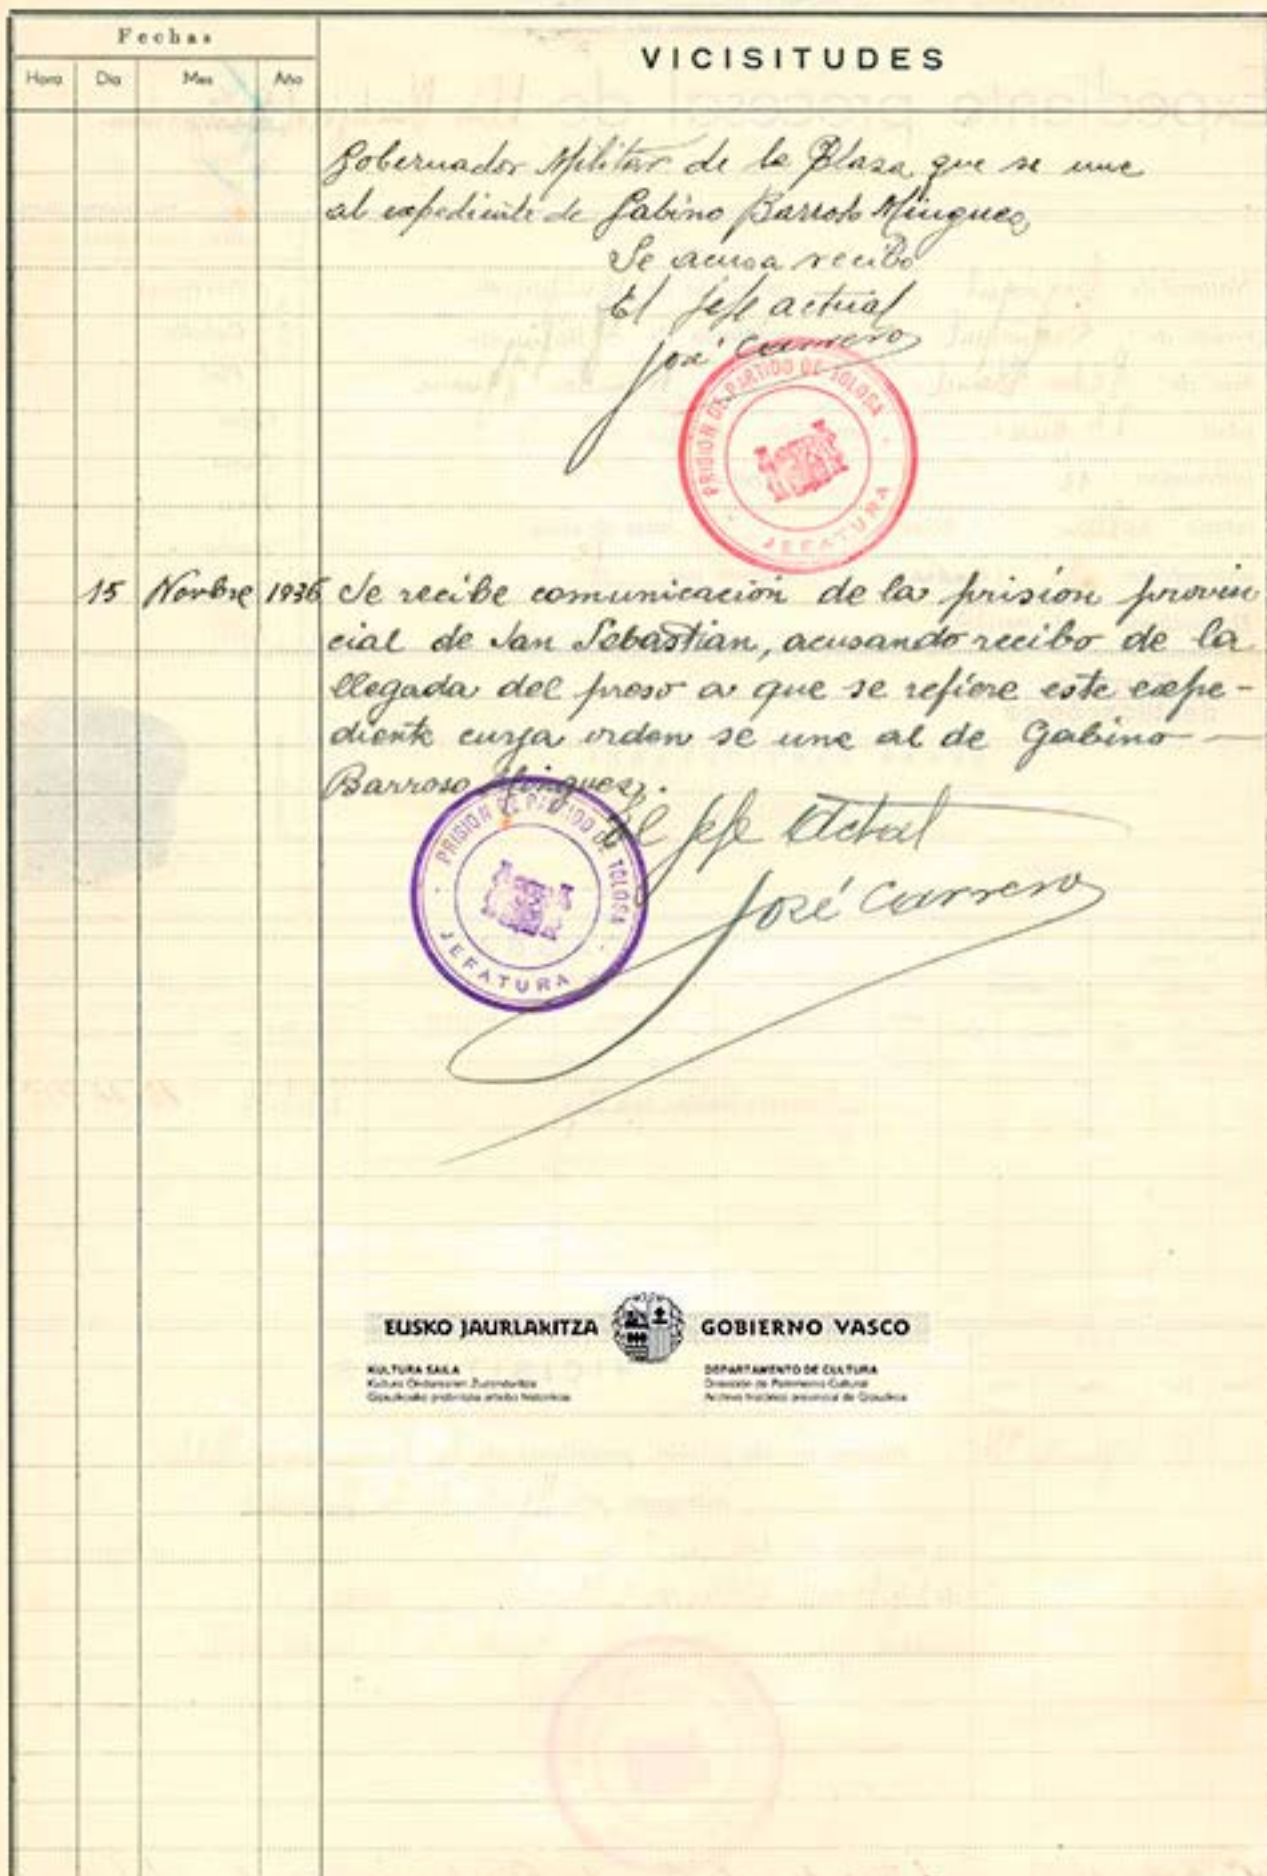 Fechas
VICISITUDES
Hora Día Mes Año
Gobernador Militar de la Plaza que se une
al expediente de Gabino Barroso Minguez
Se acusa recibo
El Jefe actual
José Carrero
PRISION DE PARTIDO DE TOLOSA
JEFATURA
15 Novbre 1936 Se recibe comunicación de la prisión provin
cial de San Sebastian, acusando recibo de la
llegada del preso a que se refiere este expe-
diente cuya orden se une al de Gabino —
Barroso Minguez.
El Jefe Actal
José Carrero
PRISION DE PARTIDO DE TOLOSA
JEFATURA
EUSKO JAURLARITZA GOBIERNO VASCO
KULTURA SAILA
Kultura Ondarearen Zuzendaritza
Gipuzkoako probintzia artxibo historikoa
DEPARTAMENTO DE CULTURA
Dirección de Patrimonio Cultural
Archivo histórico provincial de Gipuzkoa